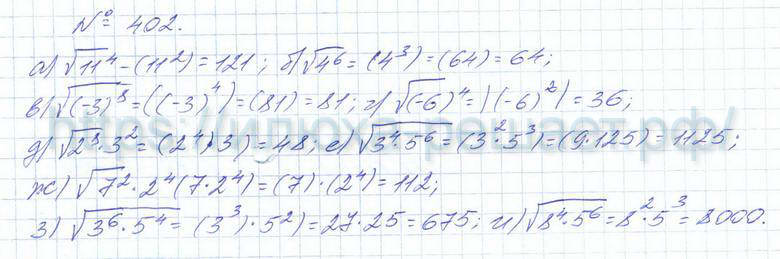 № 402.
а) √11⁴ - (11²) = 121; б) √4⁶ = (4³) = (64) = 64;
в) √(-3)⁸ = ((-3)⁴) = (81) = 81; г) √(-6)⁴ = |(-6)²) = 36;
д) √2⁸·3² = (2⁴)·3) = 48; е) √3⁴·5⁶ = (3²·5³) = (9·125) = 1125;
ж) √7²·2⁴ (7·2⁴) = (7)·(2⁴) = 112;
з) √3⁶·5⁴ = (3³)·5²) = 27·25 = 675; и) √8⁴·5⁶ = 8²·5³ = 8000.